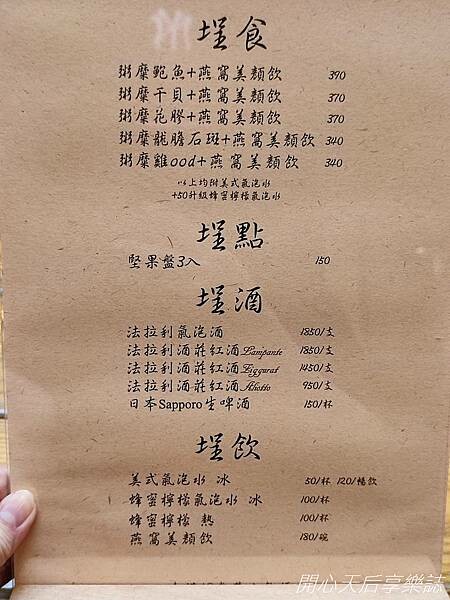 埕食
粥糜鮑魚+燕窩美顏飲 390
粥糜干貝+燕窩美顏飲 370
粥糜花膠+燕窩美顏飲 370
粥糜龍膽石斑+燕窩美顏飲 340
粥糜雞ood+燕窩美顏飲 340
以上均附美式氣泡水
+50升級蜂蜜檸檬氣泡水
埕點
堅果盤3入 150
埕酒
法拉利氣泡酒 1850/支
法拉利酒莊紅酒Lampante 1850/支
法拉利酒莊紅酒Ziggurat 1450/支
法拉利酒莊紅酒Aliotto 950/支
日本Sapporo生啤酒 150/杯
埕飲
美式氣泡水 冰 50/杯 120/暢飲
蜂蜜檸檬氣泡水 冰 100/杯
蜂蜜檸檬 熱 100/杯
燕窩美顏飲 180/碗
開心天后享樂誌